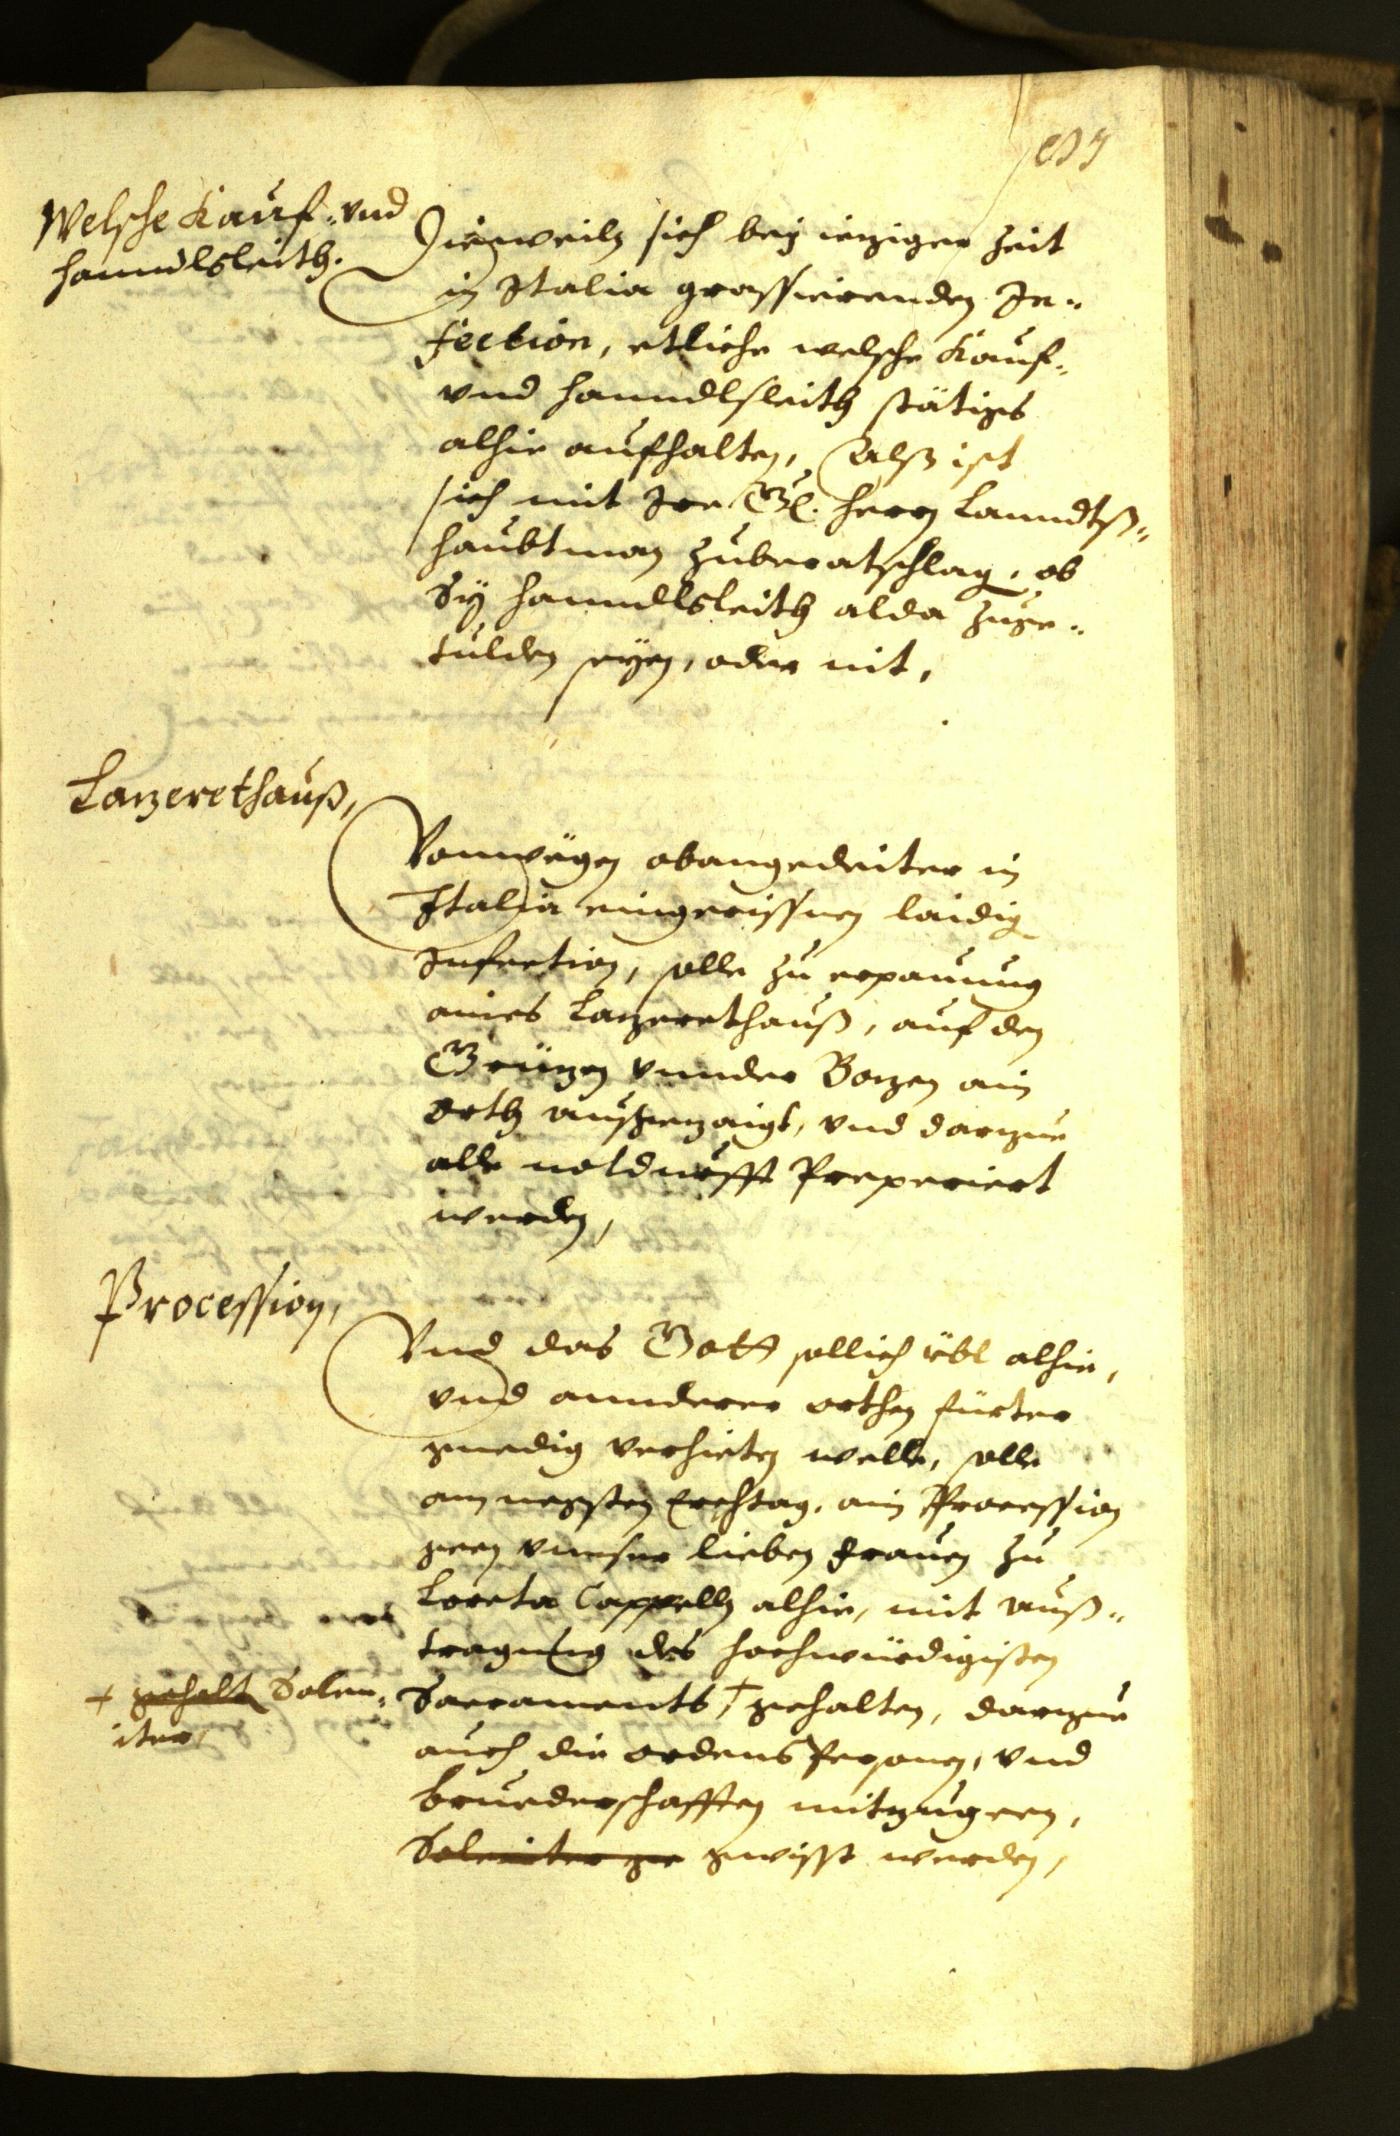 Welsche Kauf- und
hanndlsleith.
Dieweiln sich bey ieziger Zeit
in Italia grassierenden In-
fection, etliche welsche Kauf-
und hanndlsleith stätigs
alhie aufhalten, Alß ist
sich mit Ire Gl. herrn Lanndtß-
haubtman zuberatschlag, ob
Sÿ hanndlsleith alda zuge-
tulden seyen, oder nit,
Lazerethauß,
Vonwegen obangedeiter in
Italia eingerissnen laidig
Infection, solle zu erpauung
aines Lazerethauß, auf den
Grüzen unnder Bozen ain
orth außgezaigt, und darzue
alle notdurfft Preperiert
werden,
Procession,
Und das Gott sollich übl alhie,
und annderer orthen fürter
gnedig verhieten welle, solle
am negsten Erchtag, ain Procession
geen unnser lieben frauen zu
Loreta Cappelln alhie, mit auß-
tragung des hochwürdigisten
+ gehalt Solen-
iter,
Sacraments, + gehalten, darzue
auch die ordens Personen, und
bruederschafften mitzugeen,
Soleniter ge gwisst werden,